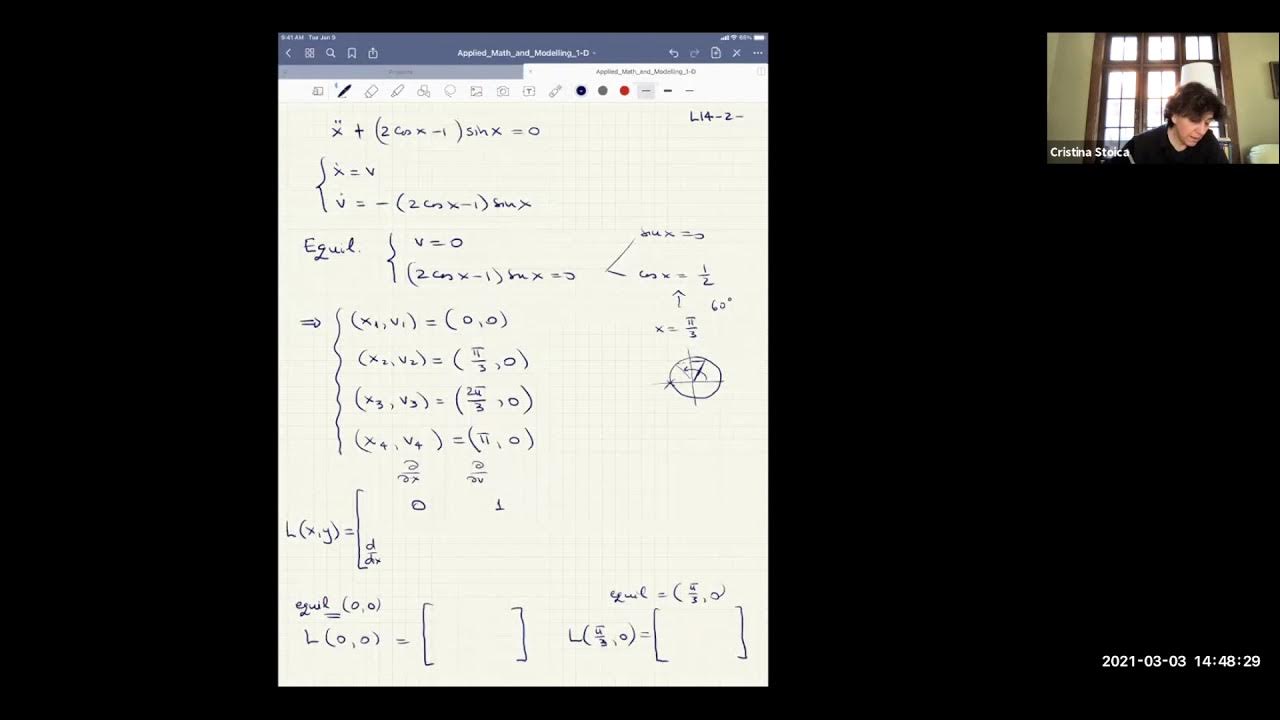 9:41 AM Tue Jan 9
66%
Applied_Math_and_Modelling_1-D
Applied_Math_and_Modelling_1-D
L14-2-
ẍ + (2cosx-1)sinx = 0
ẋ = v
v̇ = -(2cosx-1)sinx
Equil. { v = 0
(2cosx-1)sinx = 0
sinx = 0
cosx = 1/2
↑ 60°
x = π/3
⇒ { (x₁,v₁) = (0,0)
(x₂,v₂) = (π/3, 0)
(x₃,v₃) = (2π/3, 0)
(x₄,v₄) = (π, 0)
∂/∂x ∂/∂v
0 1
L(x,y) = [
d/dx
equil (0,0)
L(0,0) = [ ]
equil = (π/3, 0)
L(π/3, 0) = [ ]
Cristina Stoica
2021-03-03 14:48:29